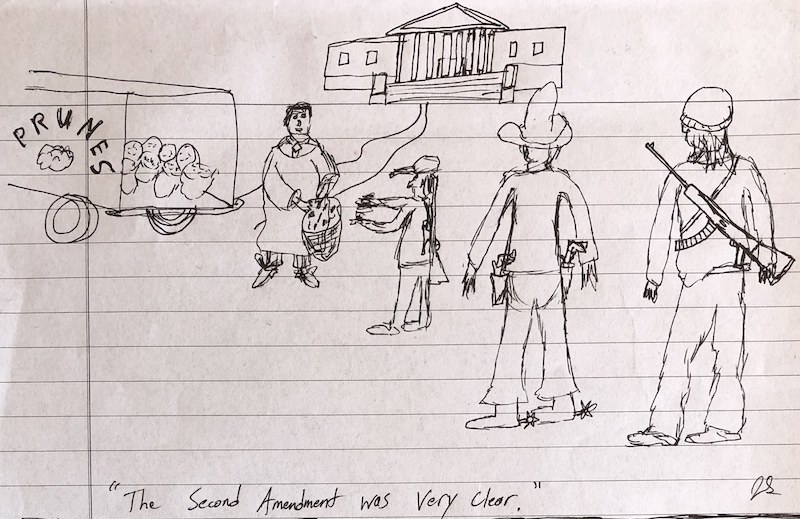 PRUNES
"The Second Amendment was very Clear."